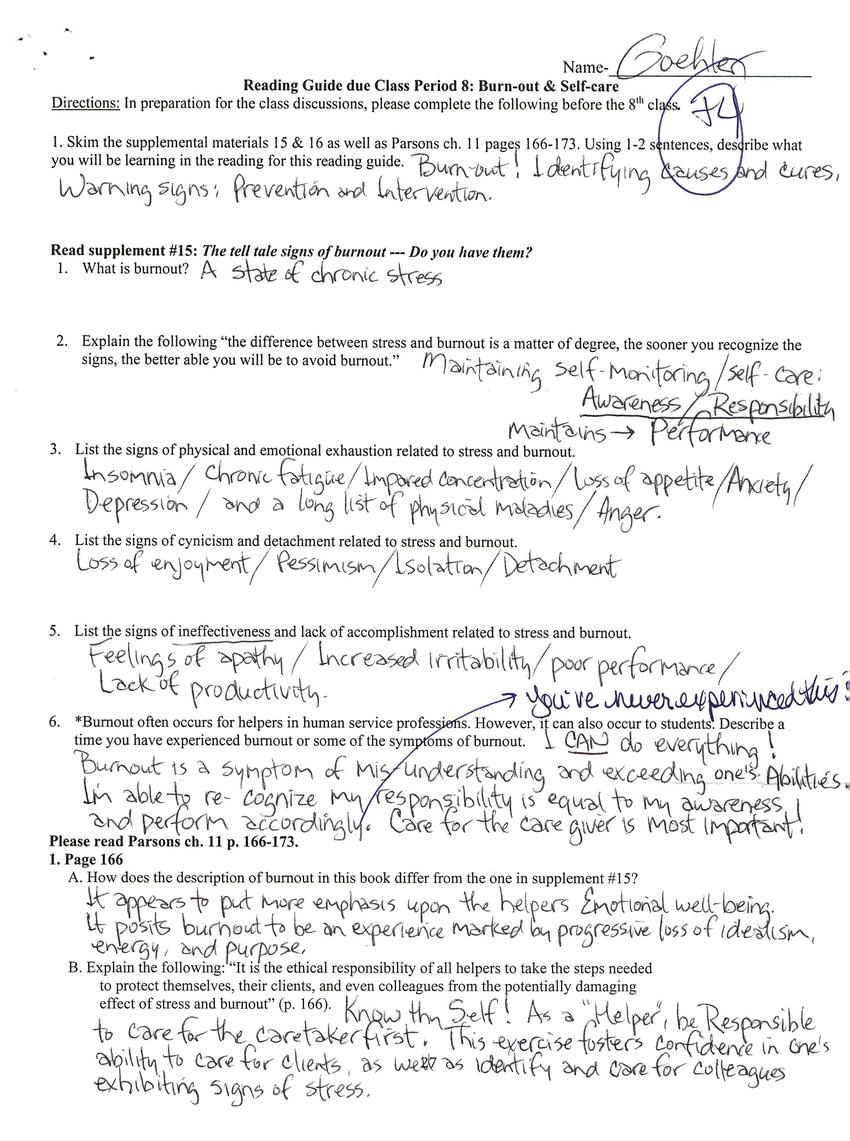 Name- Goehler
Reading Guide due Class Period 8: Burn-out & Self-care
Directions: In preparation for the class discussions, please complete the following before the 8th class.
+4
1. Skim the supplemental materials 15 & 16 as well as Parsons ch. 11 pages 166-173. Using 1-2 sentences, describe what
you will be learning in the reading for this reading guide. Burn-out! Identifying causes and cures,
Warning signs; Prevention and Intervention.
Read supplement #15: The tell tale signs of burnout --- Do you have them?
1. What is burnout? A state of chronic stress
2. Explain the following “the difference between stress and burnout is a matter of degree, the sooner you recognize the
signs, the better able you will be to avoid burnout.” Maintaining Self-Monitoring/self-care:
Awareness/Responsibility
Maintains → Performance
3. List the signs of physical and emotional exhaustion related to stress and burnout.
Insomnia/ Chronic fatigue/Impared concentration/Loss of appetite/Anxiety/
Depression/ and a long list of physical maladies/ Anger.
4. List the signs of cynicism and detachment related to stress and burnout.
Loss of enjoyment/ Pessimism/Isolation/Detachment
5. List the signs of ineffectiveness and lack of accomplishment related to stress and burnout.
Feelings of apathy/ Increased irritability/ poor performance/
Lack of productivity.
→ You've never experienced this?
6. *Burnout often occurs for helpers in human service professions. However, it can also occur to students. Describe a
time you have experienced burnout or some of the symptoms of burnout. I CAN do everything!
Burnout is a symptom of mis-understanding and exceeding one's Abilities.
I'm able to re-cognize my responsibility is equal to my awareness,
and perform accordingly. Care for the care giver is most important!
Please read Parsons ch. 11 p. 166-173.
1. Page 166
A. How does the description of burnout in this book differ from the one in supplement #15?
It appears to put more emphasis upon the helpers Emotional well-being.
It posits burnout to be an experience marked by progressive loss of idealism,
energy, and purpose.
B. Explain the following: “It is the ethical responsibility of all helpers to take the steps needed
to protect themselves, their clients, and even colleagues from the potentially damaging
effect of stress and burnout” (p. 166). Know thy Self! As a "Helper", be Responsible
to care for the caretaker first. This exercise fosters confidence in one's
ability to care for clients, as well as identify and care for colleagues
exhibiting signs of stress.